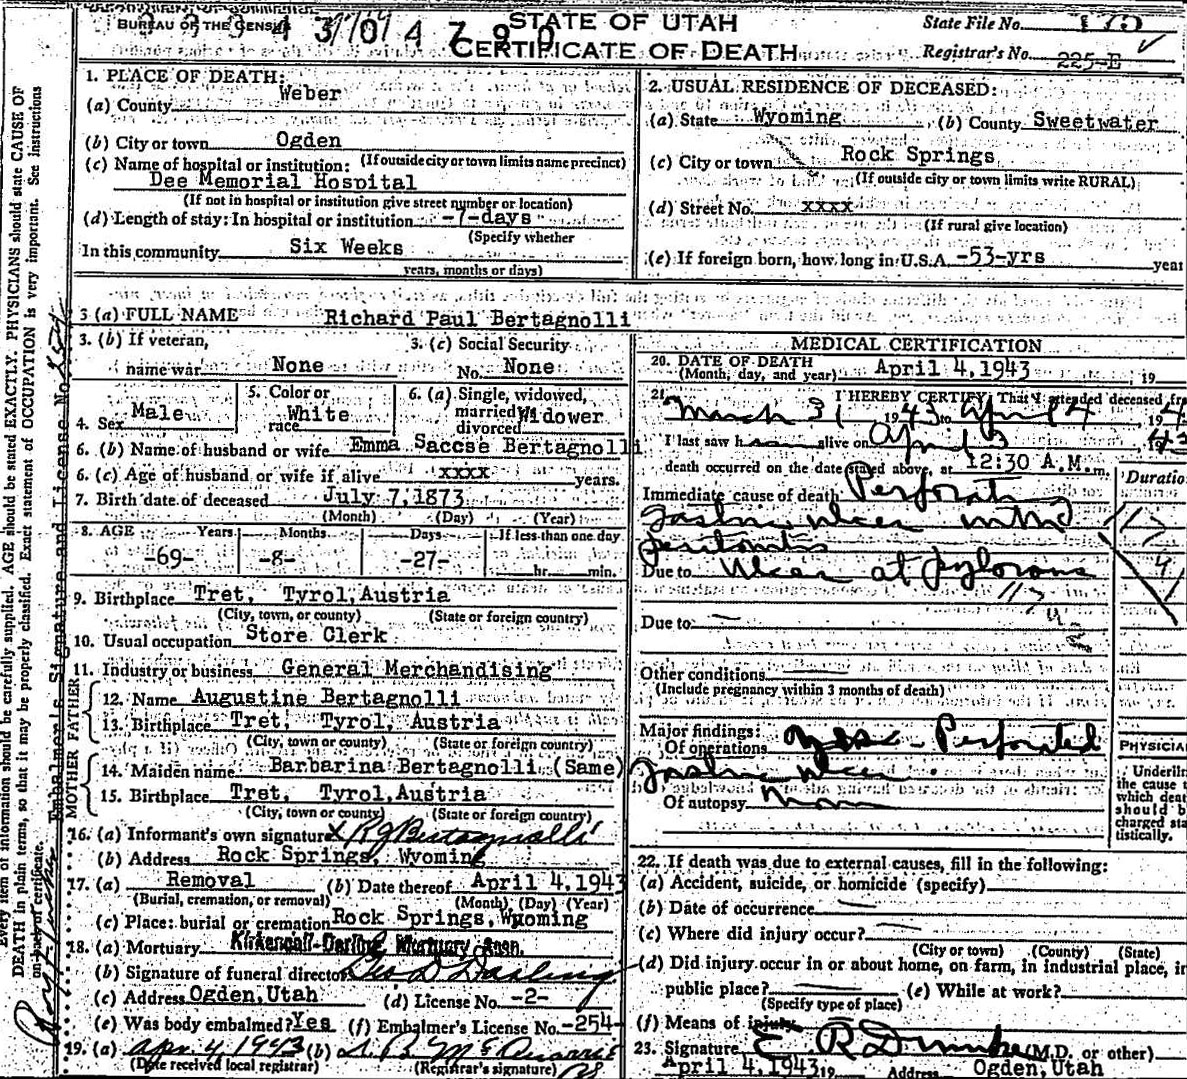 BUREAU OF THE CENSUS
STATE OF UTAH
CERTIFICATE OF DEATH
State File No. 175
Registrar's No. 225-E
1. PLACE OF DEATH:
(a) County Weber
(b) City or town Ogden
(If outside city or town limits name precinct)
(c) Name of hospital or institution:
Dee Memorial Hospital
(If not in hospital or institution give street number or location)
(d) Length of stay: In hospital or institution -7-days
(Specify whether
In this community Six Weeks
years, months or days)
2. USUAL RESIDENCE OF DECEASED:
(a) State Wyoming (b) County Sweetwater
(c) City or town Rock Springs
(If outside city or town limits write RURAL)
(d) Street No. xxxx
(If rural give location)
(e) If foreign born, how long in U.S.A. -53-yrs year
3 (a) FULL NAME Richard Paul Bertagnolli
3. (b) If veteran,
name war None
3. (c) Social Security
No. None
4. Sex Male
5. Color or
race White
6. (a) Single, widowed,
married,
divorced Widower
6. (b) Name of husband or wife Emma Saccse Bertagnolli
6. (c) Age of husband or wife if alive xxxx years.
7. Birth date of deceased July 7,1873
(Month) (Day) (Year)
8. AGE Years Months Days If less than one day
-69- -8- -27- hr. min.
9. Birthplace Tret, Tyrol,Austria
(City, town, or county) (State or foreign country)
10. Usual occupation Store Clerk
11. Industry or business General Merchandising
FATHER
12. Name Augustine Bertagnolli
13. Birthplace Tret, Tyrol, Austria
(City, town or county) (State or foreign country)
MOTHER
14. Maiden name Barbarina Bertagnolli (Same)
15. Birthplace Tret, Tyrol,Austria
(City, town or county) (State or foreign country)
16. (a) Informant's own signature x R J Bertagnolli
(b) Address Rock Springs, Wyoming
17. (a) Removal (b) Date thereof April 4,1943
(Burial, cremation, or removal) (Month) (Day) (Year)
(c) Place: burial or cremation Rock Springs, Wyoming
18. (a) Mortuary Kirkendall-Darling Mortuary Assn.
(b) Signature of funeral director Geo D Darling
(c) Address Ogden,Utah (d) License No. -2-
(e) Was body embalmed? Yes (f) Embalmer's License No. -254-
19. (a) Apr. 4 1943 (b)
(Date received local registrar) (Registrar's signature)
MEDICAL CERTIFICATION
20. DATE OF DEATH
(Month, day, and year) April 4,1943 , 19
21. I HEREBY CERTIFY, That I attended deceased fr
March 31 1943 to April 4 , 1943
I last saw h alive on April 3 , 1943
death occurred on the date stated above, at 12:30 A.M. m.
Duratio
Immediate cause of death Perforating
gastric ulcer with
peritonitis
Due to Ulcer at pylorous
Due to
Other conditions
(Include pregnancy within 3 months of death)
Major findings:
Of operations - Perforated
gastric ulcer.
Of autopsy
PHYSICIAN
Underlin
the cause t
which deat
should b
charged sta
tistically.
22. If death was due to external causes, fill in the following:
(a) Accident, suicide, or homicide (specify)
(b) Date of occurrence
(c) Where did injury occur?
(City or town) (County) (State)
(d) Did injury occur in or about home, on farm, in industrial place, in
public place? (e) While at work?
(Specify type of place)
(f) Means of injury
23. Signature (M.D. or other)
April 4,1943 19 Address Ogden,Utah
Every item of information should be carefully supplied. AGE should be stated EXACTLY. PHYSICIANS should state CAUSE OF
DEATH in plain terms, so that it may be properly classified. Exact statement of OCCUPATION is very important. See instructions
on back of certificate.
Embalmer's Signature and License No.